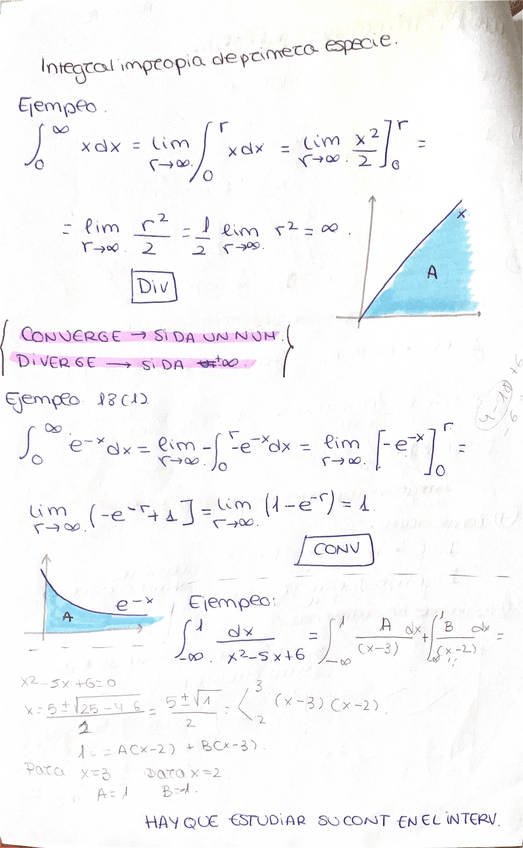 Integral impropia de primera especie.
Ejemplo.
∫₀^∞ x dx = lim_{r→∞} ∫₀^r x dx = lim_{r→∞} x²/2 ]₀^r =
= lim_{r→∞} r²/2 = 1/2 lim_{r→∞} r² = ∞.
x
A
Div
CONVERGE → SI DA UN NUM.
DIVERGE → SI DA ±∞.
Ejemplo 1B(1).
∫₀^∞ e^{-x} dx = lim_{r→∞} -∫₀^r -e^{-x} dx = lim_{r→∞} [-e^{-x}]₀^r =
lim_{r→∞} (-e^{-r}+1] = lim_{r→∞} (1-e^{-r}) = 1.
CONV
A
e^{-x}
Ejemplo:
∫_{-∞}^1 dx/(x²-5x+6) = ∫_{-∞}^1 A/(x-3) dx + ∫_{-∞}^1 B/(x-2) dx =
x²-5x+6=0
x = (5±√(25-4·6))/2 = (5±√1)/2 = < 3 2 (x-3)(x-2).
1 = A(x-2) + B(x-3).
Para x=3 Para x=2
A=1 B=-1.
HAY QUE ESTUDIAR SU CONT EN EL INTERV.